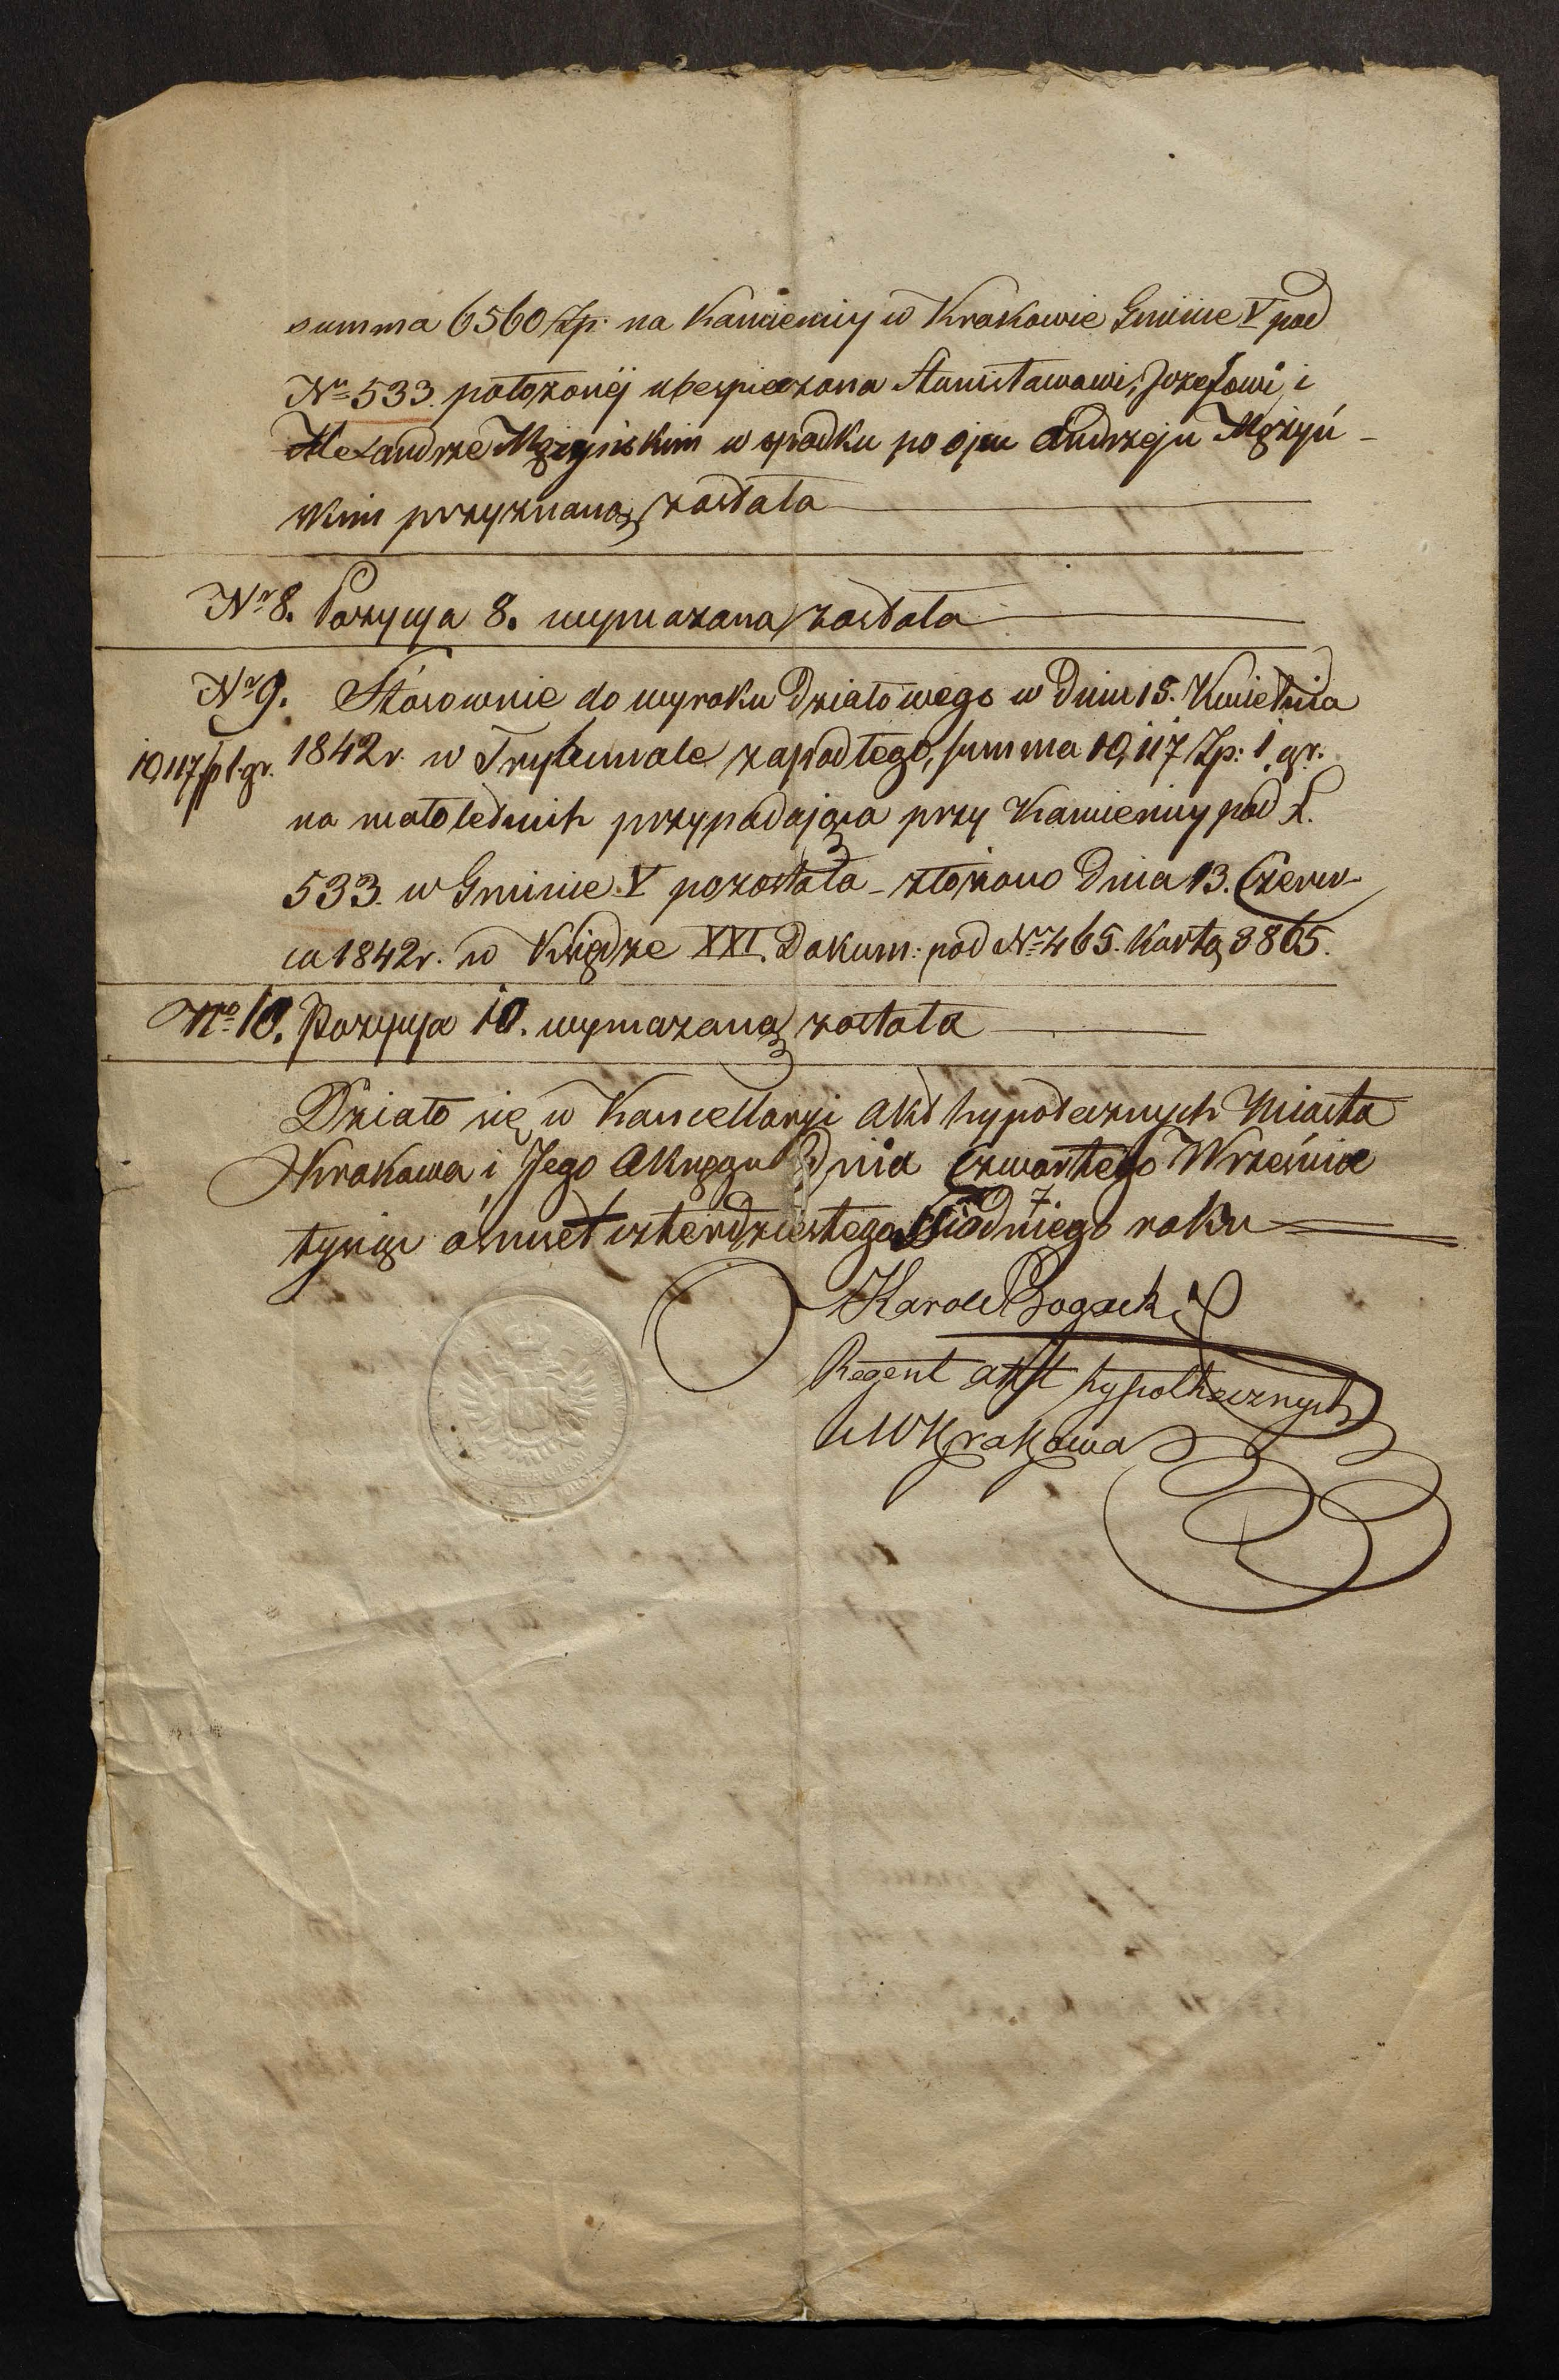 summa 6560 Zp: na Kamienicy w Krakowie Gminie V pod
Nr 533. położonéj ubespieczona Stanisławowi, Jozefowi i
Alexandrze Mężyńskim w spadku po ojcu Andrzeju Mężyń-
skim przyznaną została
Nr 8. Pozycya 8. wymazana została
Nr 9. Stósownie do wyroku działowego w dniu 15. Kwietnia
10,117 zp 1. gr. 1842 r. w Trybunale zapadłego, summa 10,117 Zp: 1. gr.
na małoletnich przypadająca przy Kamienicy pod L.
533. w Gminie V pozostała - złożono Dnia 13. Czerw-
ca 1842 r. w Księdze XXI. Dokum: pod Nr 465. Kartą 3865.
Nro 10. Pozycya 10. wymazaną została
Działo się w Kancellaryi Akt hypotecznych Miasta
Krakowa i Jego Okręgu Dnia czwartego Września
tysiąc ośmset czterdziestego Siódmego roku
7
Karol Bogacki
Regent akt hypothecznych
M Krakowa